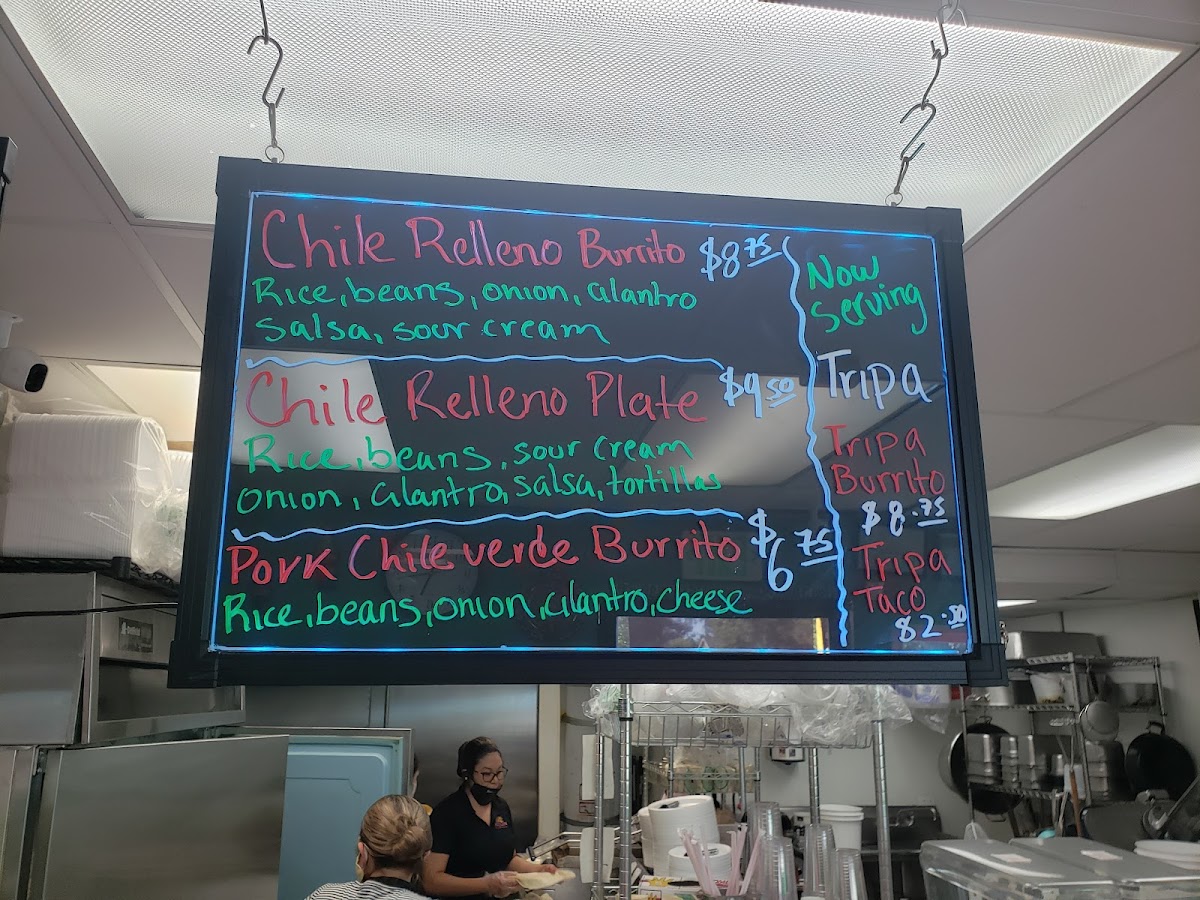 Chile Relleno Burrito $8.75
Rice, beans, onion, cilantro
Salsa, sour cream
Chile Relleno Plate $9.50
Rice, beans, sour cream
onion, cilantro, salsa, tortillas
Pork Chile verde Burrito $6.75
Rice, beans, onion, cilantro, cheese
Now
Serving
Tripa
Tripa
Burrito
$8.75
Tripa
Taco
$2.50